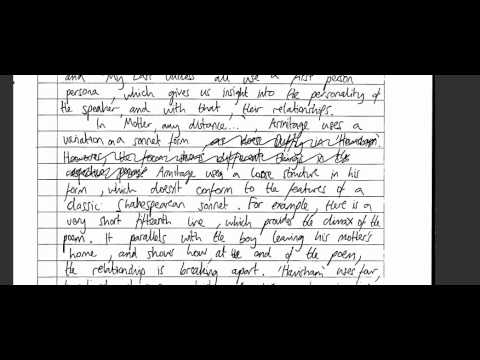 and 'My Last Duchess' all use a first person
persona, which gives us insight into the personality of
the speaker, and with that, their relationships.
In 'Mother, any distance...', Armitage uses a
variation on a sonnet form, as does Duffy in 'Havisham'.
However, the form means different things in the
respective poems. Armitage uses a loose structure in his
form, which doesn't conform to the features of a
classic Shakespearean sonnet. For example, there is a
very short fifteenth line, which provides the climax of the
poem. It parallels with the boy leaving his mother's
home, and shows how at the end of the poem,
the relationship is breaking apart. 'Havisham' uses four,